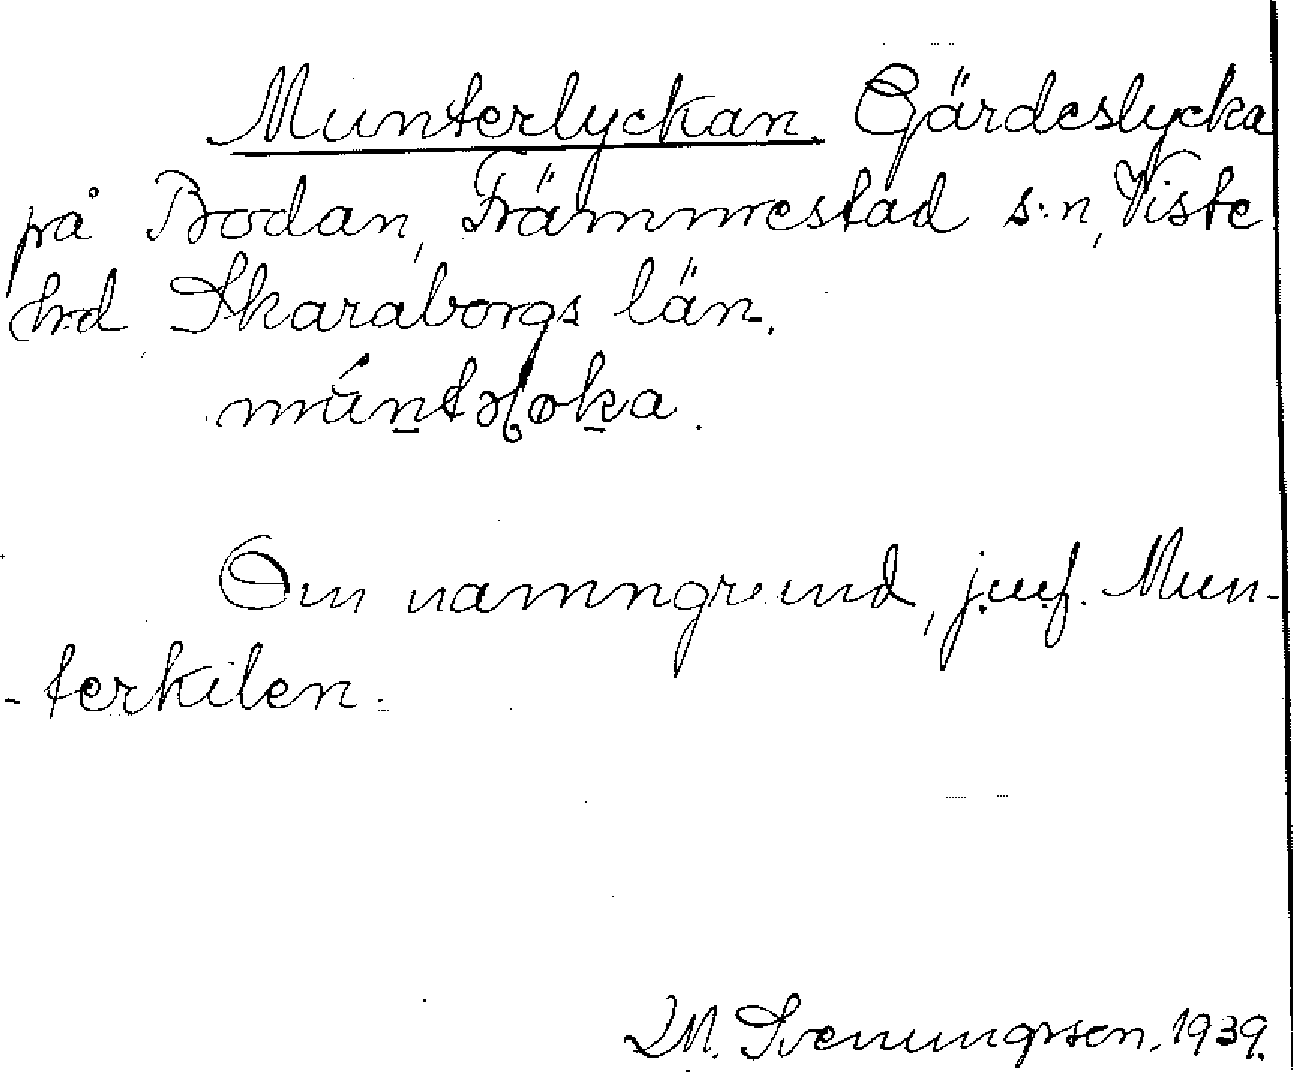 Munterlyckan. Gärdeslycka
på Bodan, Främmestad s:n, Viste
hrd Skaraborgs län.
Om namngrund, jmf. Mun-
-terkilen.
M. Svenungsson. 1939.